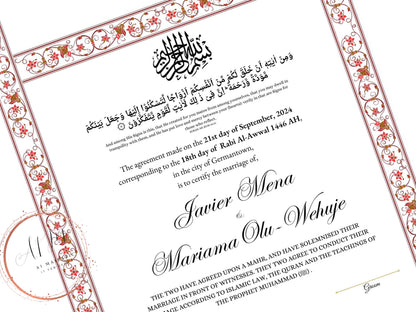 بسم الله الرحمن الرحيم
وَمِنْ آيَتِهِ أَنْ خَلَقَ لَكُمْ مِّنْ أَنْفُسِكُمْ أَزْوَاجًا لِّتَسْكُنُوا إِلَيْهَا وَجَعَلَ بَيْنَكُمْ
مَّوَدَّةً وَرَحْمَةً ۚ إِنَّ فِي ذَٰلِكَ لَآيَاتٍ لِّقَوْمٍ يَتَفَكَّرُونَ
And among His Signs is this, that He created for you mates from among yourselves, that you may dwell in
tranquility with them, and He has put love and mercy between your (hearts): verily in that are Signs for
those who reflect.
The agreement made on the 21st day of September, 2024
corresponding to the 18th day of Rabi Al-Awwal 1446 AH,
in the city of Germantown,
is to certify the marriage of,
Javier Mena
&
Mariama Olu-Wehuje
THE TWO HAVE AGREED UPON A MAHR, AND HAVE SOLEMNISED THEIR
MARRIAGE IN FRONT OF WITNESSES. THEY TWO AGREE TO CONDUCT THEIR
AGE ACCORDING TO ISLAMIC LAW, THE QURAN AND THE TEACHINGS OF
THE PROPHET MUHAMMAD (ﷺ).
Groom